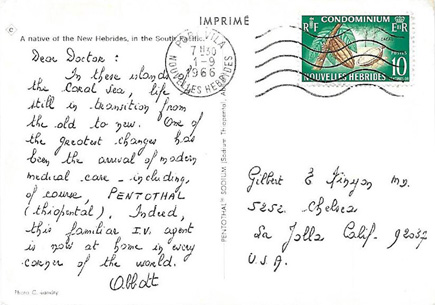 IMPRIMÉ
A native of the New Hebrides, in the South Pacific.
Dear Doctor:
In these islands of
the Coral Sea, life is
still in transition from
the old to new. One of
the greatest changes has
been the arrival of modern
medical care - including,
of course, PENTOTHAL
(thiopental). Indeed,
this familiar I.V. agent
is now at home in every
corner of the world.
Abbott
PENTOTHAL SODIUM (Sodium Thiopental,
VILA
7 30
1-9
1966
NOUVELLES HEBRIDES
CONDOMINIUM
RF
ER
NOUVELLES HÉBRIDES
10
Gilbert E Finyon MD.
5252 Chelsea
La Jolla Calif. 92037
U.S.A.